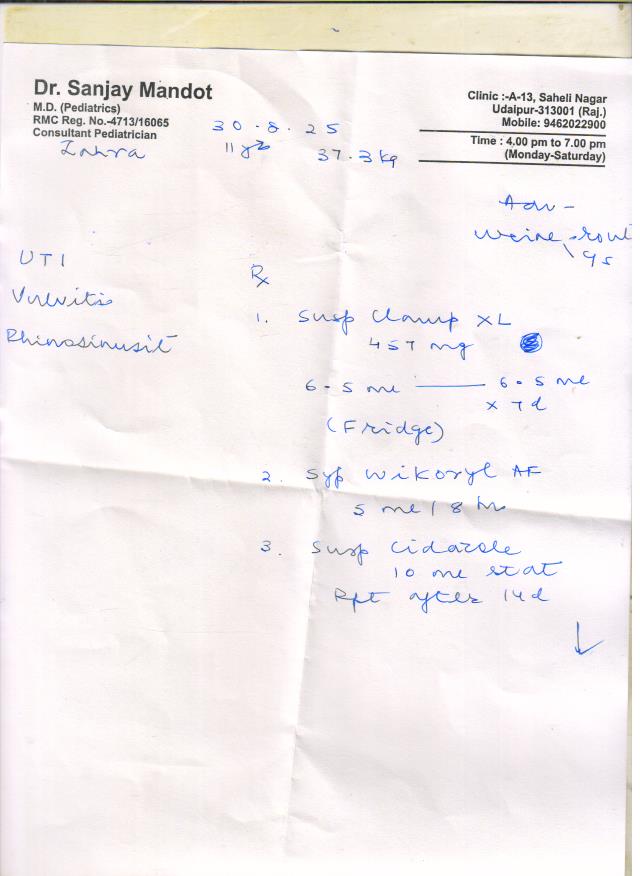 Dr. Sanjay Mandot
M.D. (Pediatrics)
RMC Reg. No.-4713/16065
Consultant Pediatrician
Clinic :-A-13, Saheli Nagar
Udaipur-313001 (Raj.)
Mobile: 9462022900
Time : 4.00 pm to 7.00 pm
(Monday-Saturday)
30.8.25
Zahra 11 yrs 37.3 kg
Adv -
Urine rout
UTI
Vulvitis
Rhinosinusit
Rx
1. Susp Clamp XL
457 mg
6.5 ml — 6.5 ml
x 7d
(Fridge)
2. Syp Wikoryl AF
5 ml / 8 hr
3. Susp Cidazole
10 ml stat
Rpt after 14d